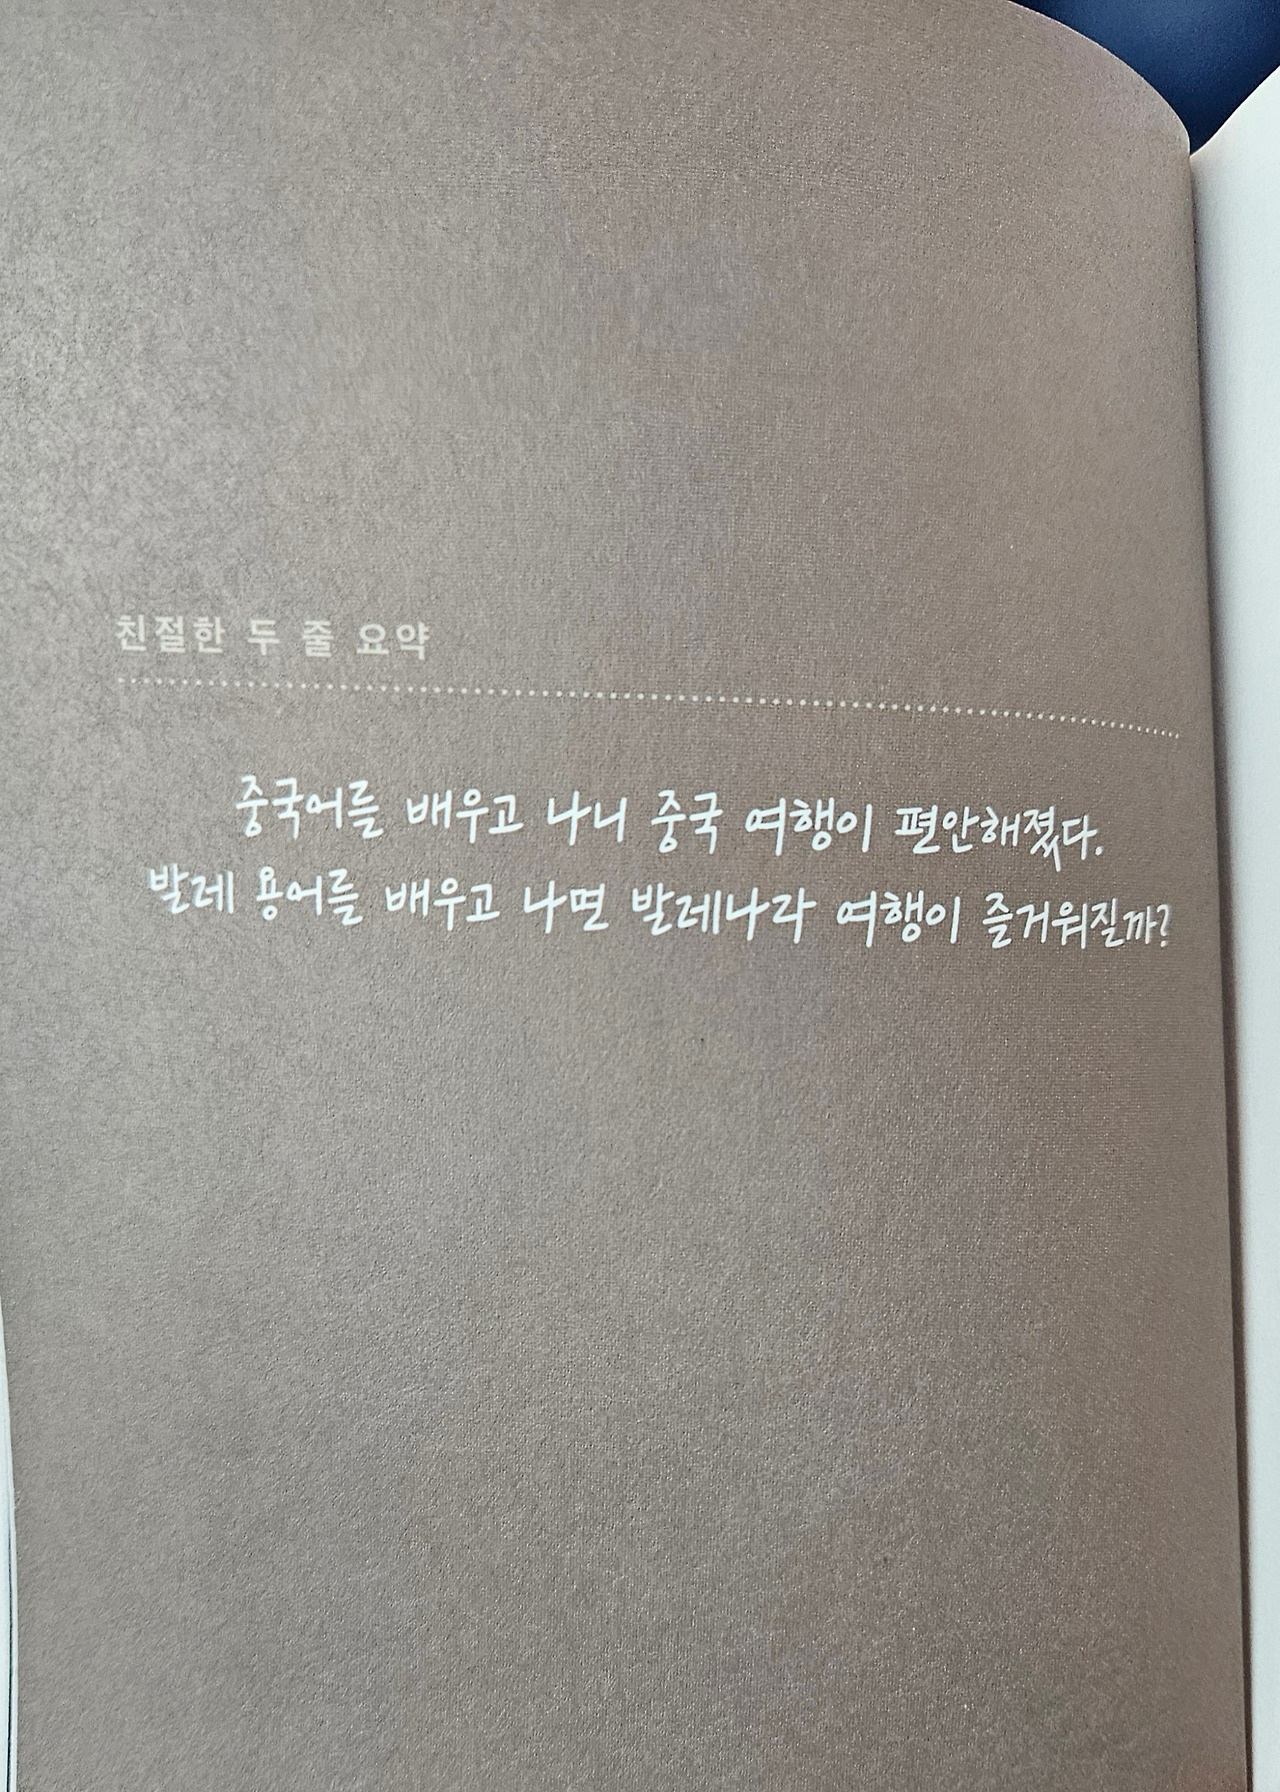 친절한 두 줄 요약
중국어를 배우고 나니 중국 여행이 편안해졌다.
발레 용어를 배우고 나면 발레나라 여행이 즐거워질까?